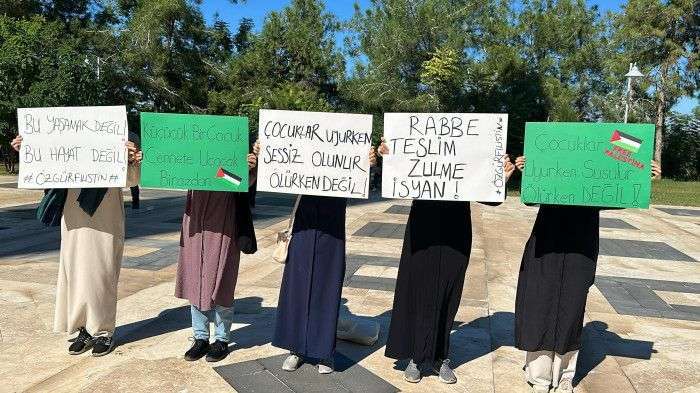 BU YAŞAMAK DEĞİL!
BU HAYAT DEĞİL!
#ÖZGÜRFİLİSTİN
Küçücük Bir Çocuk
Cennete Uçacak
Birazdan
ÇOCUKLAR UYURKEN
SESSİZ OLUNUR
ÖLÜRKEN DEĞİL!
RABBE
TESLİM
ZULME
İSYAN!
#ÖZGÜRFİLİSTİN
Çocuklar
Uyurken Susulur
Ölürken DEĞİL!
FREE
PALESTINE